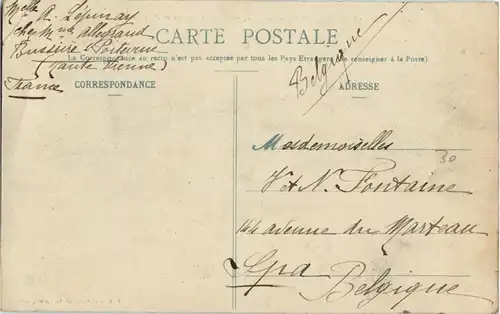 Melle A. Lépinay
chez Mme Allassant
Bussière Poitevine
(Haute Vienne)
France
CARTE POSTALE
La Correspondance au recto n'est pas acceptée par tous les Pays Etrangers (Se renseigner à la Poste)
CORRESPONDANCE
ADRESSE
Belgique
Mesdemoiselles
30
V & N. Fontaine
144 avenue du Marteau
Spa Belgique